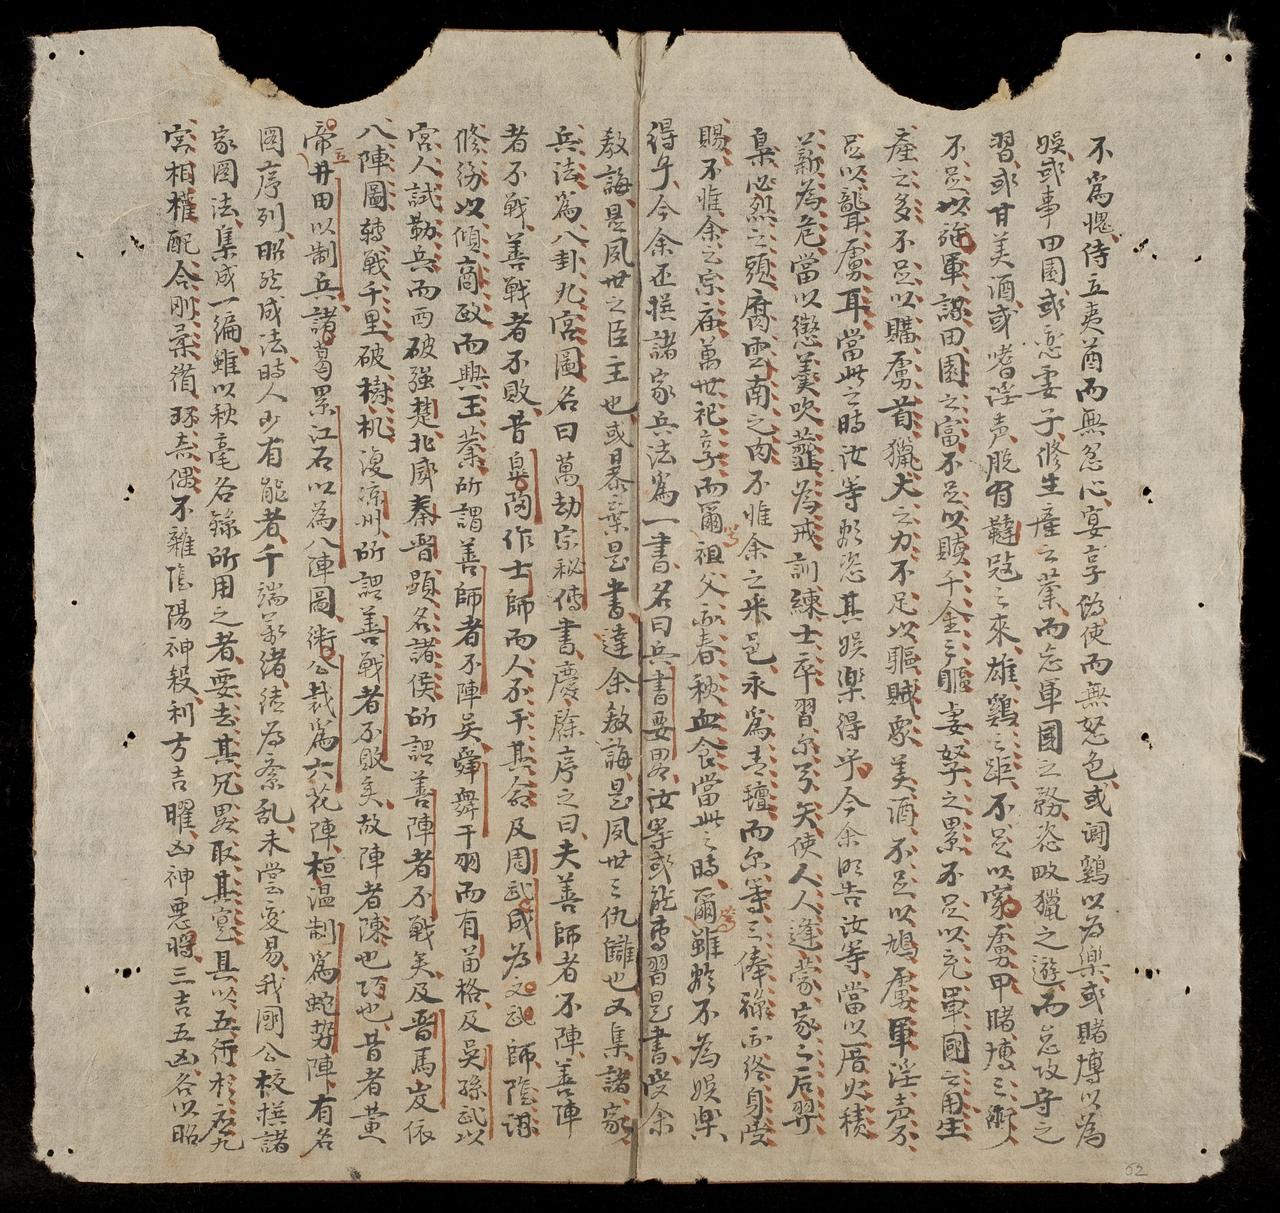 不爲愧侍立夷酋而無忿心宴享偽使而無怒色或闘鷄以为樂或賭博以為
娱或事田園或恋妻子修生産之業而忘軍國之務恣畋獵之遊而怠攻守之
習或甘美酒或嗜淫声脱有韃冦之來雄鷄之距不足以穿虜甲賭博之術
不足以施軍謀田園之富不足以贖千金之軀妻孥之累不足以充軍國之用生
産之多不足以購虜首獵犬之力不足以驅賊衆美酒不足以鴆虜軍淫声不
足以聾虜耳當此之時汝等欲恣其娯樂得乎今余明告汝等當以厝火積
薪為危當以懲羹吹虀為戒訓練士卒習尔弓矢使人人逢蒙家之后羿
梟必烈之頭腐雲南之肉不惟余之采邑永爲青氊而尔等之俸祿亦終身受
賜不惟余之宗庙萬世祀享而爾祖父亦春秋血食當此之時爾雖欲不為娯樂
得乎今余歷撰諸家兵法爲一書名曰兵書要畧汝等或能專習是書受余
教誨是夙世之臣主也或暴棄是書違余教誨是夙世之仇讎也又集諸家
兵法爲八卦九宮圖名曰萬劫宗秘傳書慶餘序之曰夫善師者不陣善陣
者不戰善戰者不敗昔臯陶作士師而人不干其命及周武成為文武師陰謌
修德以傾商政而興王業所謂善師者不陣矣舜舞干羽而有苗格及吳孫武以
宮人試勒兵而西破强楚北威秦晋顯名諸侯所謂善陣者不戰矣及晋馬岌依
八陣圖轉戰千里破樹机復凉州所謂善戰者不敗矣故陣者陳也巧也昔者黄
帝立井田以制兵諸葛累江石以為八陣圖衛公裁爲六花陣桓温制爲蛇势陣有名
図序列昭然成法時人少有能者千端萬緒徒為紊乱未嘗变易我國公校撰諸
家図法集成一編雖以秋毫各錄所用之者要去其冗畧取其寔具以五行相應九
宮相權配合剛柔循環奇偶不雜陰陽神殺利方吉曜凶神悪將三吉五凶各以昭
62